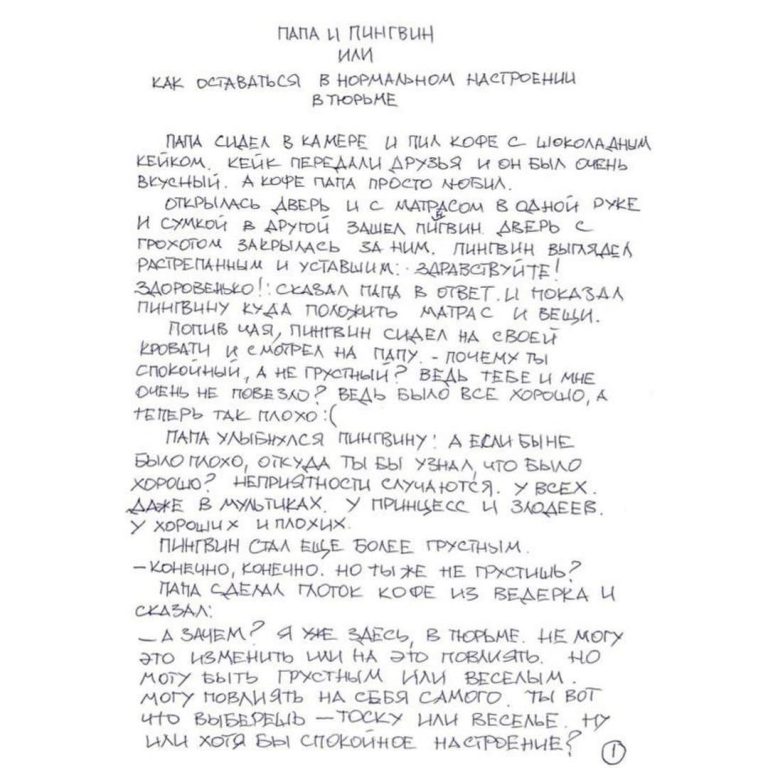 ПАПА И ПИНГВИН
ИЛИ
КАК ОСТАВАТЬСЯ В НОРМАЛЬНОМ НАСТРОЕНИИ
В ТЮРЬМЕ
ПАПА СИДЕЛ В КАМЕРЕ И ПИЛ КОФЕ С ШОКОЛАДНЫМ
КЕЙКОМ. КЕЙК ПЕРЕДАЛИ ДРУЗЬЯ И ОН БЫЛ ОЧЕНЬ
ВКУСНЫЙ. А КОФЕ ПАПА ПРОСТО ЛЮБИЛ.
ОТКРЫЛАСЬ ДВЕРЬ И С МАТРАСОМ В ОДНОЙ РУКЕ
И СУМКОЙ В ДРУГОЙ ЗАШЕЛ ПИНГВИН. ДВЕРЬ С
ГРОХОТОМ ЗАКРЫЛАСЬ ЗА НИМ. ПИНГВИН ВЫГЛЯДЕЛ
РАСТРЕПАННЫМ И УСТАВШИМ: - ЗДРАВСТВУЙТЕ!
ЗДОРОВЕНЬКО!: СКАЗАЛ ПАПА В ОТВЕТ. И ПОКАЗАЛ
ПИНГВИНУ КУДА ПОЛОЖИТЬ МАТРАС И ВЕЩИ.
ПОПИВ ЧАЯ, ПИНГВИН СИДЕЛ НА СВОЕЙ
КРОВАТИ И СМОТРЕЛ НА ПАПУ. - ПОЧЕМУ ТЫ
СПОКОЙНЫЙ, А НЕ ГРУСТНЫЙ? ВЕДЬ ТЕБЕ И МНЕ
ОЧЕНЬ НЕ ПОВЕЗЛО? ВЕДЬ БЫЛО ВСЕ ХОРОШО, А
ТЕПЕРЬ ТАК ПЛОХО :(
ПАПА УЛЫБНУЛСЯ ПИНГВИНУ: А ЕСЛИ БЫ НЕ
БЫЛО ПЛОХО, ОТКУДА ТЫ БЫ УЗНАЛ, ЧТО БЫЛО
ХОРОШО? НЕПРИЯТНОСТИ СЛУЧАЮТСЯ. У ВСЕХ.
ДАЖЕ В МУЛЬТИКАХ. У ПРИНЦЕСС И ЗЛОДЕЕВ.
У ХОРОШИХ И ПЛОХИХ.
ПИНГВИН СТАЛ ЕЩЕ БОЛЕЕ ГРУСТНЫМ.
- КОНЕЧНО, КОНЕЧНО. НО ТЫ ЖЕ НЕ ГРУСТИШЬ?
ПАПА СДЕЛАЛ ГЛОТОК КОФЕ ИЗ ВЕДЕРКА И
СКАЗАЛ:
- А ЗАЧЕМ? Я УЖЕ ЗДЕСЬ, В ТЮРЬМЕ. НЕ МОГУ
ЭТО ИЗМЕНИТЬ ИЛИ НА ЭТО ПОВЛИЯТЬ. НО
МОГУ БЫТЬ ГРУСТНЫМ ИЛИ ВЕСЕЛЫМ.
МОГУ ПОВЛИЯТЬ НА СЕБЯ САМОГО. ТЫ ВОТ
ЧТО ВЫБЕРЕШЬ - ТОСКУ ИЛИ ВЕСЕЛЬЕ. НУ
ИЛИ ХОТЯ БЫ СПОКОЙНОЕ НАСТРОЕНИЕ? 1